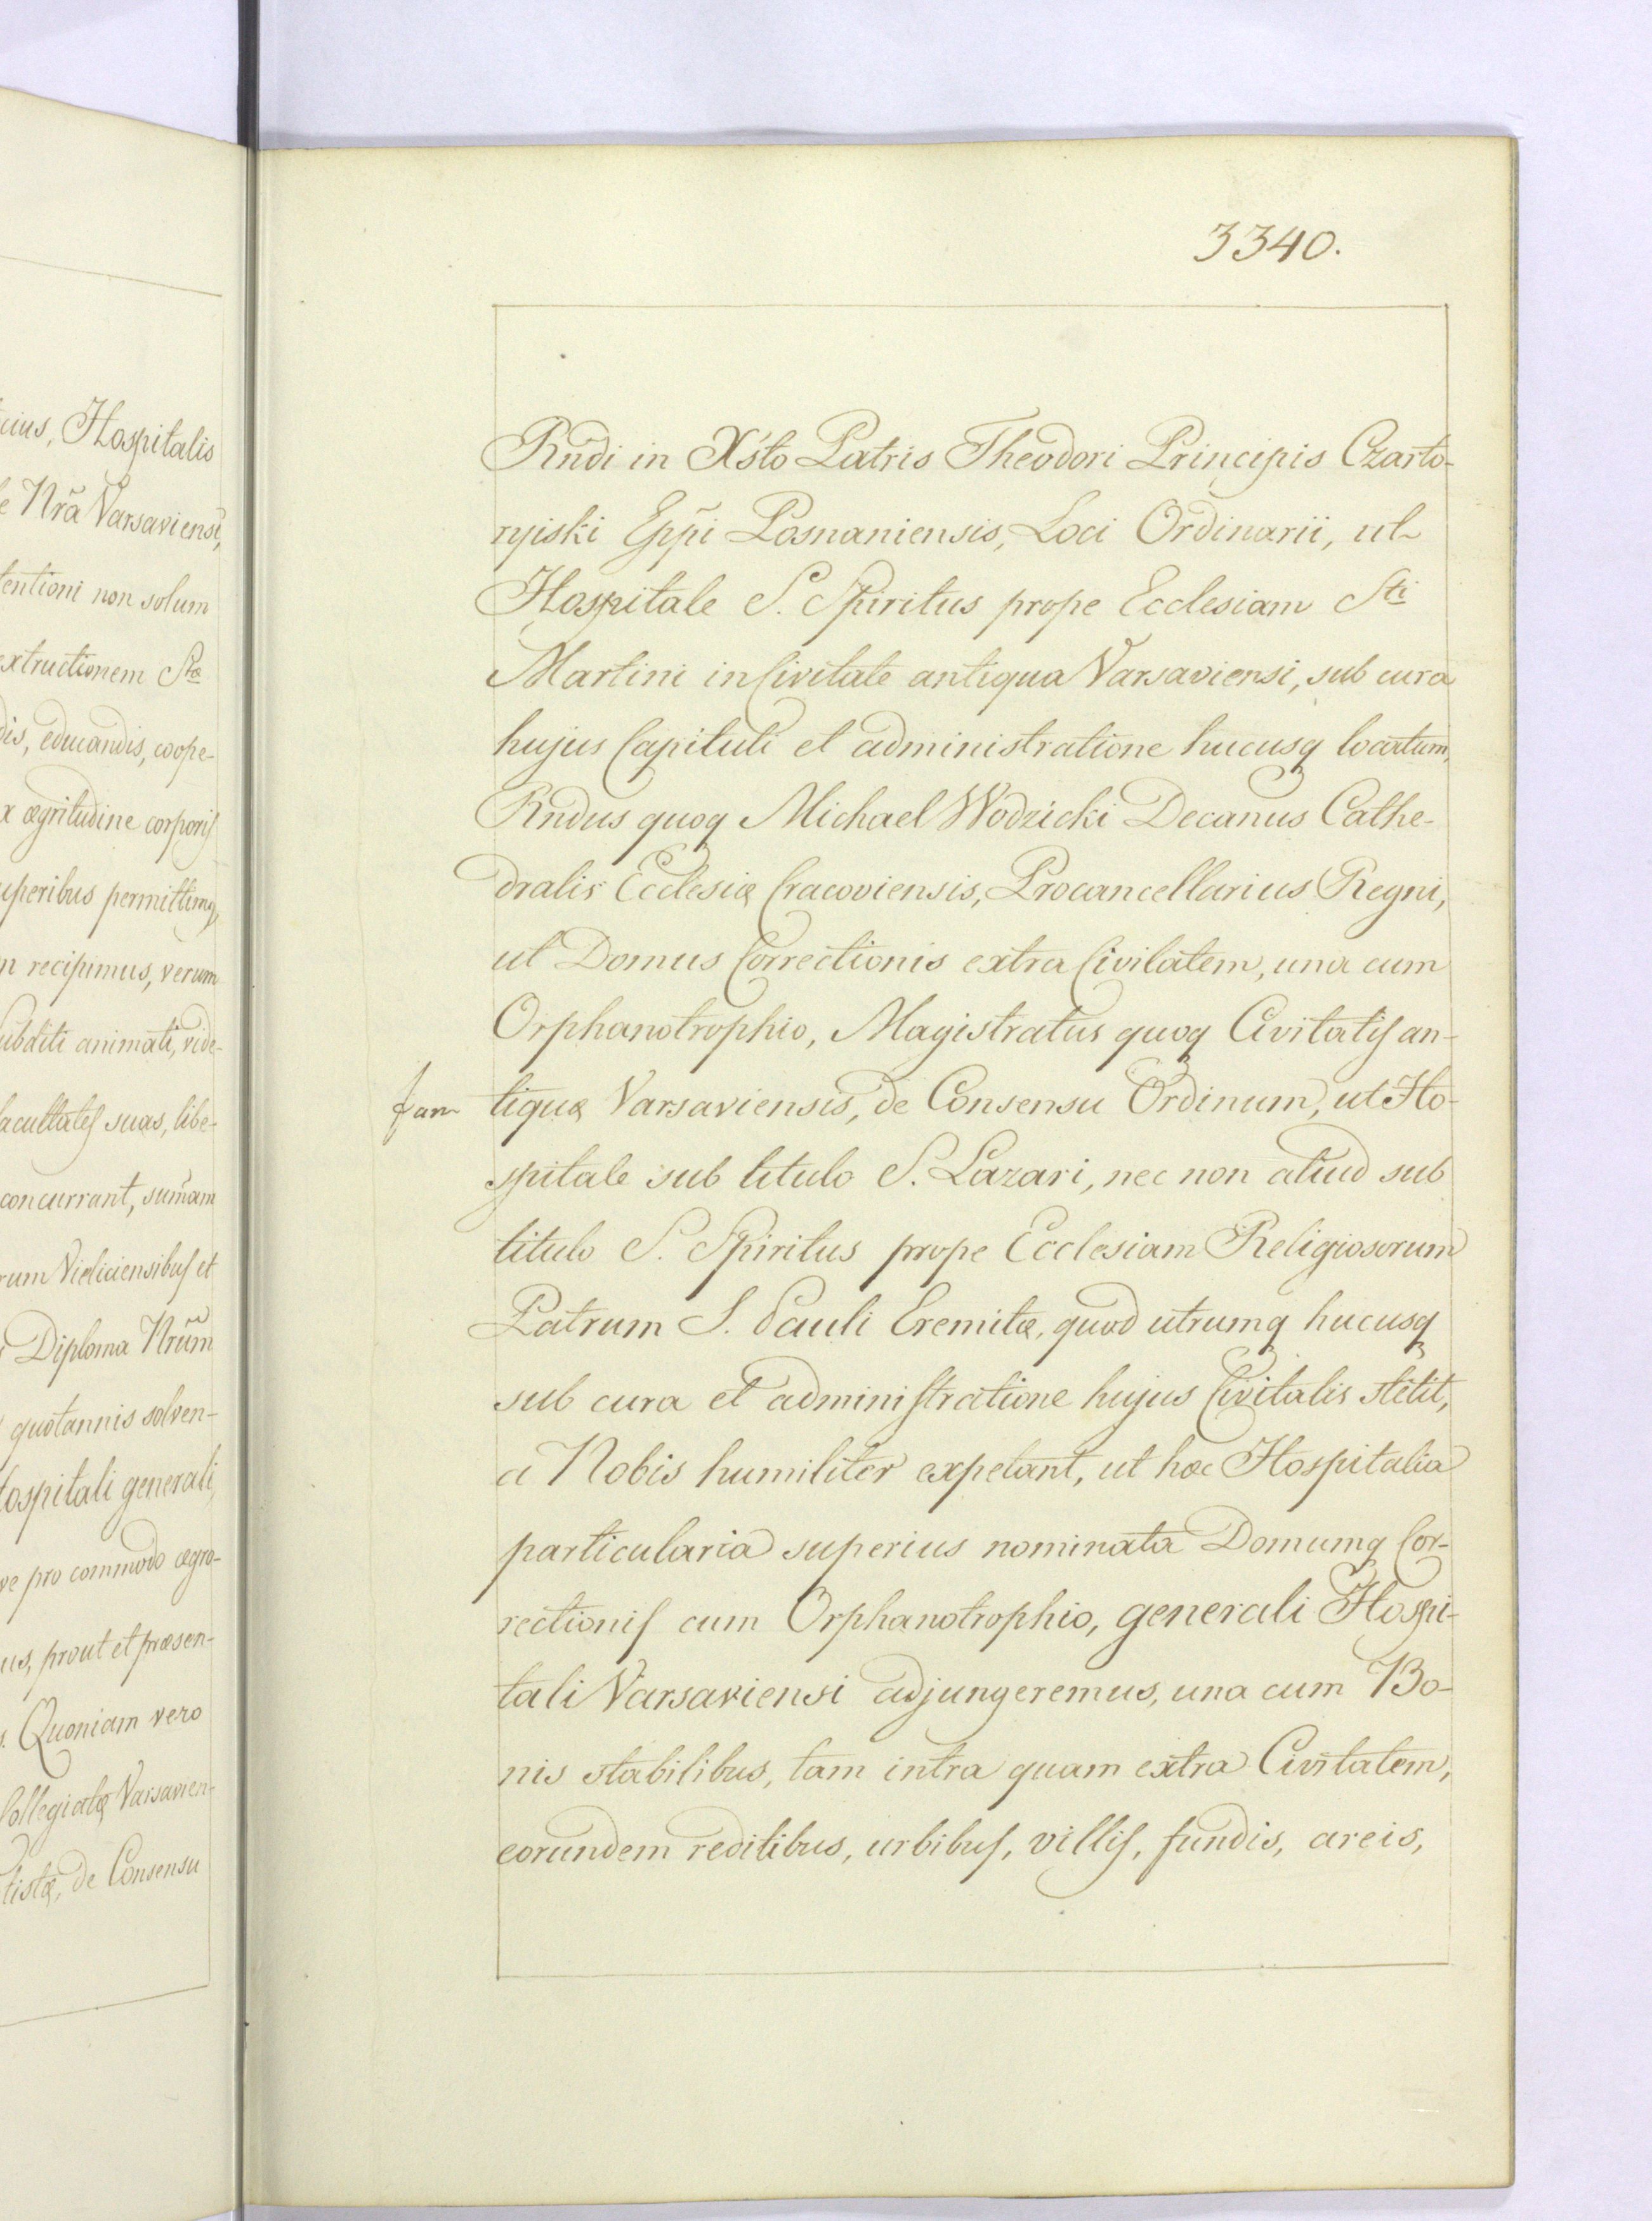 cius, Hospitalis
e Nr̃a Varsaviensi,
tentioni non solum
extructionem Stæ
dis, educandis, coope-
x ægritudine corporis
uperibus permittimq,
n recipimus, verum
ubditi animati, vide-
facultates suas, libe-
concurrant, sum̃am
rum Vieliciensibus et
Diploma Nrũm
quotannis solven-
Hospitali generali,
ve pro commodo ægro-
us, prout et præsen-
s. Quoniam vero
Collegiatæ Varsavien-
tistæ, de Consensu
3340.
Rñdi in Xsto Patris Theodori Principis Czarto-
ryiski Epp̃i Posnaniensis, Loci Ordinarii, ut
Hospitale S. Spiritus prope Ecclesiam Sti
Martini in Civitate antiqua Varsaviensi, sub cura
hujus Capituli et administratione hucusq locatum,
Rndus quoq Michael Wodzicki Decanus Cathe-
dralis Ecclesiæ Cracoviensis, Procancellarius Regni,
ut Domus Correctionis extra Civitatem, una cum
Orphanotrophio, Magistratus quoq Civitatis an-
fam tiquæ Varsaviensis, de Consensu Ordinum, ut Ho-
spitale sub titulo S. Lazari, nec non aliud sub
titulo S. Spiritus prope Ecclesiam Religiosorum
Patrum S. Pauli Eremitæ, quod utrumq hucusq
sub cura et administratione hujus Civitatis stetit,
a Nobis humiliter expetant, ut hæc Hospitalia
particularia superius nominata Domumq Cor-
rectionis cum Orphanotrophio, generali Hospi-
tali Varsaviensi adjungeremus, una cum Bo-
nis stabilibus, tam intra quam extra Civitatem,
eorundem reditibus, urbibus, villis, fundis, areis,